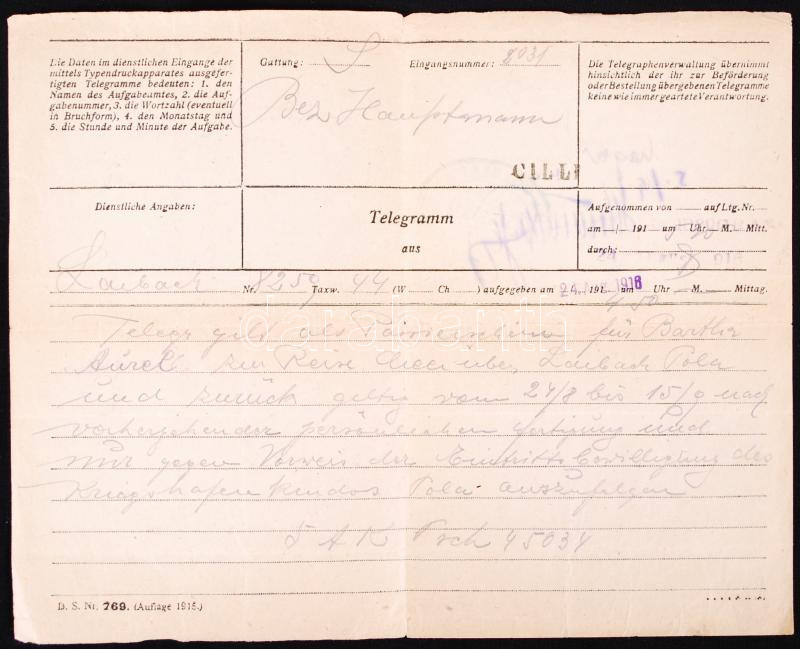 Die Daten im dienstlichen Eingange der
mittels Typendruckapparates ausgefer-
tigten Telegramme bedeuten: 1. den
Namen des Aufgabeamtes, 2. die Auf-
gabenummer, 3. die Wortzahl (eventuell
in Bruchform), 4. den Monatstag und
5. die Stunde und Minute der Aufgabe.
Gattung: S Eingangsnummer:
Bez Hauptmann
CILLI
Die Telegraphenverwaltung übernimmt
hinsichtlich der ihr zur Beförderung
oder Bestellung übergebenen Telegramme
keine wie immer geartete Verantwortung.
Dienstliche Angaben:
Telegramm
aus
Aufgenommen von auf Ltg. Nr.
am / 191 um Uhr M. Mitt.
durch:
Laibach Nr. 8259 Taxw. 44 (W Ch ) aufgegeben am 24. 1916 um 4 50 Uhr M. Mittag.
Telegr gilt als Passierschein für Bartha
Aurel zur Reise über Laibach Pola
und zurück giltig vom 24/8 bis 15/9 nach
vorhergehender persönlichen fertigung und
nur gegen Vorweis der Eintrittsbewilligung des
Kriegshafenkmdos Pola auszufolgen
5 A K 45034
D. S. Nr. 769. (Auflage 1915.)
darabanth